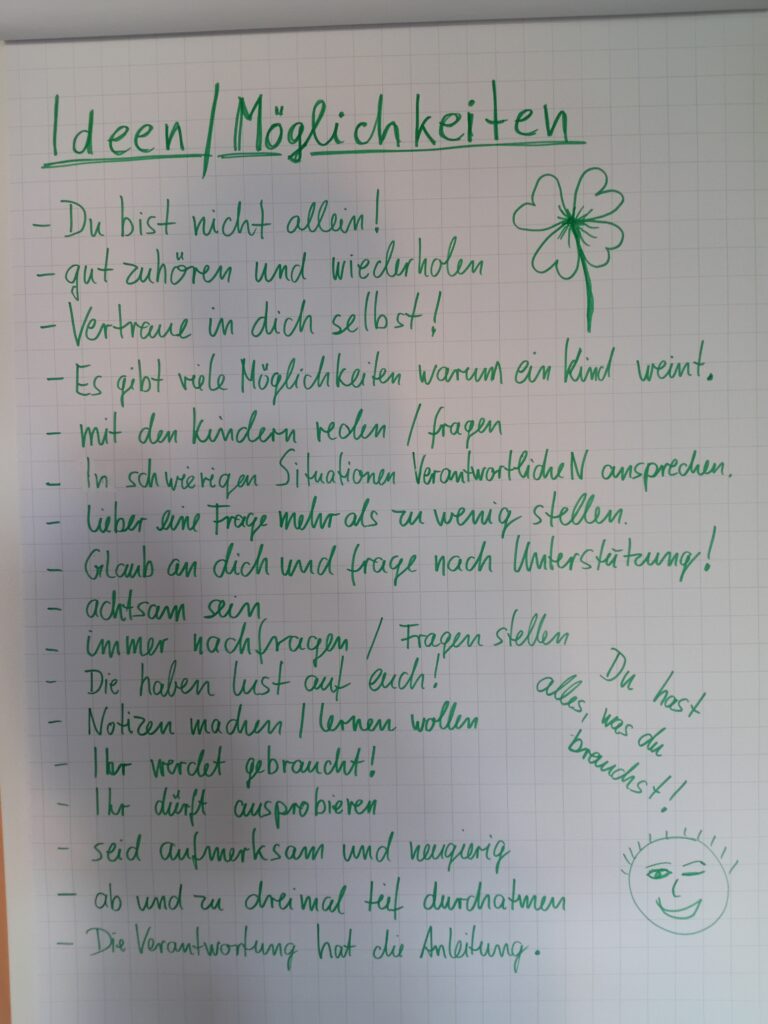 Ideen / Möglichkeiten
- Du bist nicht allein!
- gut zuhören und wiederholen
- Vertraue in dich selbst!
- Es gibt viele Möglichkeiten warum ein Kind weint.
- mit den Kindern reden / fragen
- In schwierigen Situationen VerantwortlicheN ansprechen.
- lieber eine Frage mehr als zu wenig stellen.
- Glaub an dich und frage nach Unterstützung!
- achtsam sein
- immer nachfragen / Fragen stellen
- Die haben lust auf euch!
- Notizen machen / lernen wollen
- Ihr werdet gebraucht!
- Ihr dürft ausprobieren
- seid aufmerksam und neugierig
- ab und zu dreimal teif durchatmen
- Die Verantwortung hat die Anleitung.
Du hast
alles, was du
brauchst!